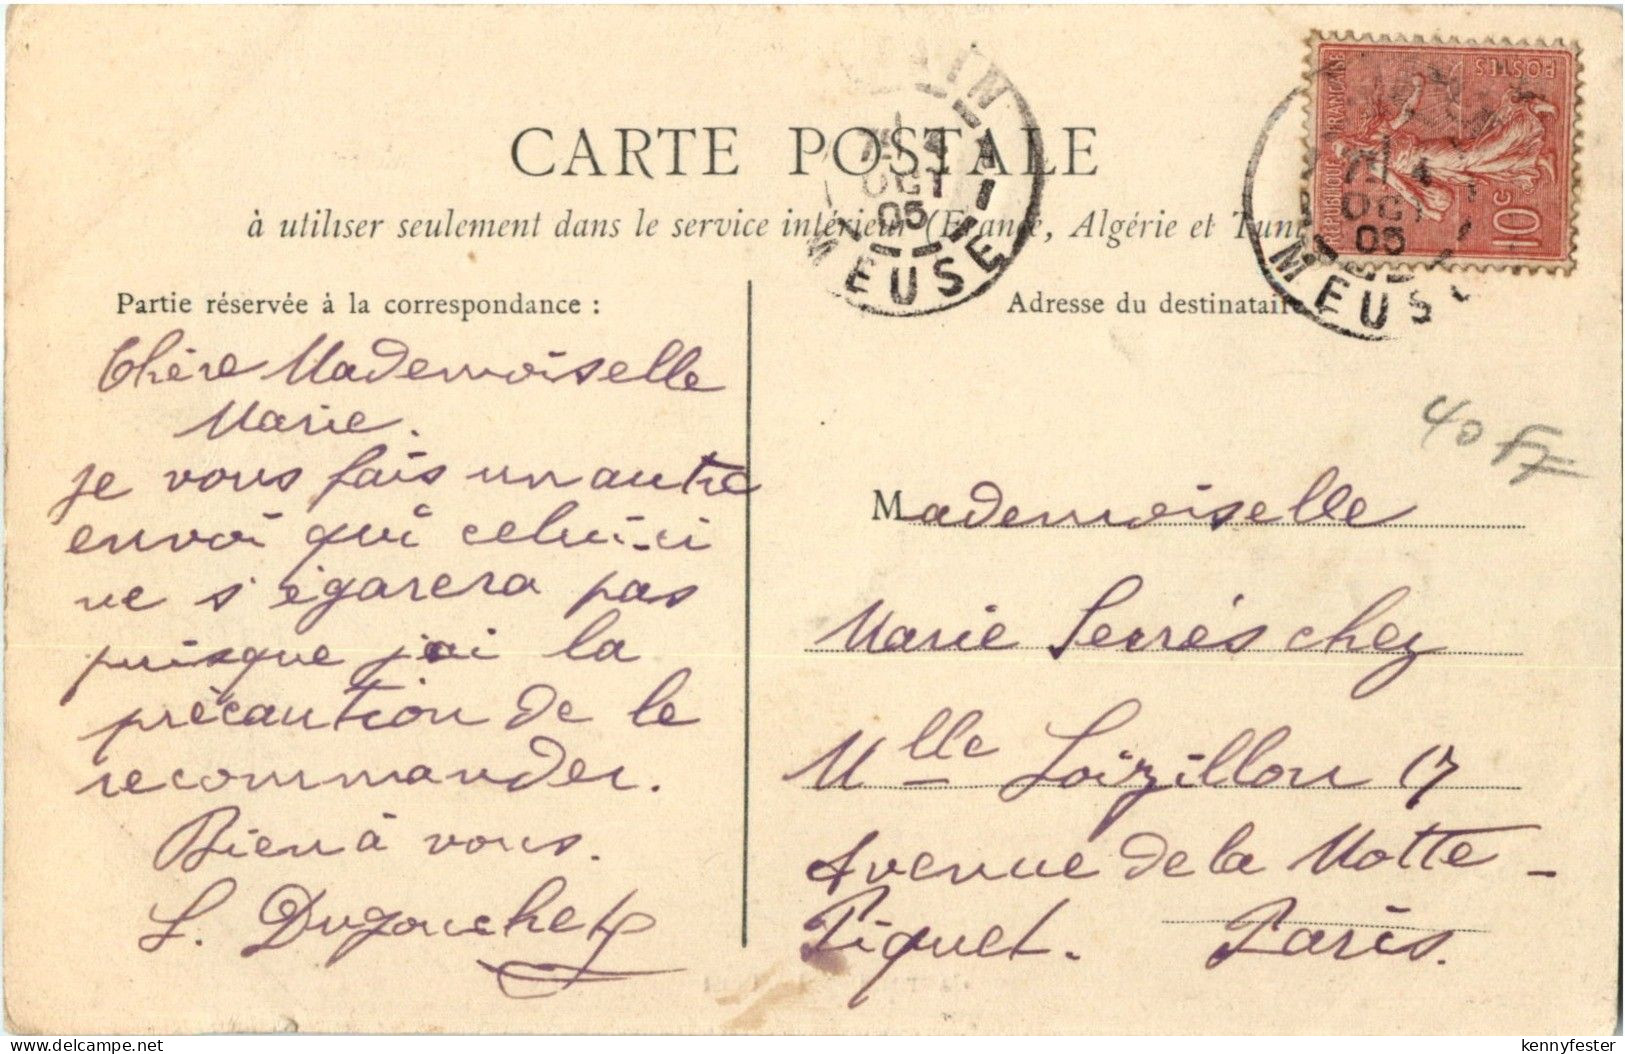 CARTE POSTALE
à utiliser seulement dans le service intérieur (France, Algérie et Tuni
Partie réservée à la correspondance :
Chère Mademoiselle
Marie.
je vous fais un autre
envoi qui celui-ci
ne s'égarera pas
puisque j'ai la
précaution de le
recommander.
Bien à vous.
L. Dugouchet
Adresse du destinataire
Mademoiselle
Marie Serrés chez
Mlle Loizillon 17
Avenue de la Motte-
Piquet. Paris.
40 F
REPUBLIQUE FRANÇAISE
POSTES
10 c
4
OCT
05
MEUSE
4
OCT
05
MEUS
www.delcampe.net
kennyfester